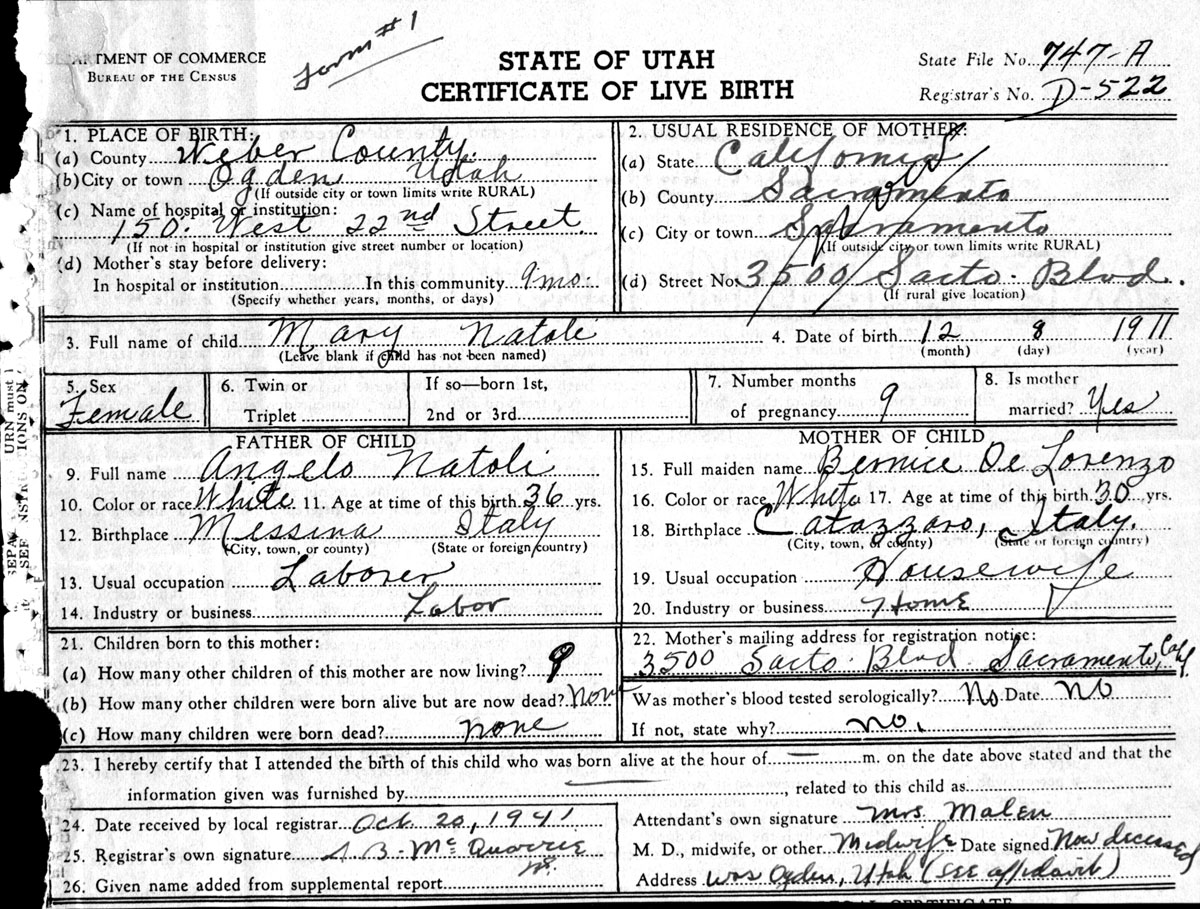 Form #1
TMENT OF COMMERCE
BUREAU OF THE CENSUS
STATE OF UTAH
CERTIFICATE OF LIVE BIRTH
State File No. 747-A
Registrar's No. D-522
1. PLACE OF BIRTH:
(a) County Weber County.
(b) City or town Ogden Utah
(If outside city or town limits write RURAL)
(c) Name of hospital or institution:
150. West 22nd Street.
(If not in hospital or institution give street number or location)
(d) Mother's stay before delivery:
In hospital or institution In this community 9 mo.
(Specify whether years, months, or days)
2. USUAL RESIDENCE OF MOTHER:
(a) State California
(b) County Sacramento
(c) City or town Sacramento
(If outside city or town limits write RURAL)
(d) Street No. 3500 Sacto. Blvd.
(If rural give location)
3. Full name of child Mary Natoli
(Leave blank if child has not been named)
4. Date of birth 12 8 1911
(month) (day) (year)
5. Sex
Female
6. Twin or
Triplet
If so—born 1st,
2nd or 3rd
7. Number months
of pregnancy 9
8. Is mother
married? Yes
FATHER OF CHILD
9. Full name Angelo Natoli
10. Color or race White 11. Age at time of this birth 36 yrs.
12. Birthplace Messina Italy
(City, town, or county) (State or foreign country)
13. Usual occupation Laborer
14. Industry or business Labor
MOTHER OF CHILD
15. Full maiden name Bernice De Lorenzo
16. Color or race White 17. Age at time of this birth 30 yrs.
18. Birthplace Catazzaro, Italy.
(City, town, or county) (State or foreign country)
19. Usual occupation Housewife
20. Industry or business Home
21. Children born to this mother:
(a) How many other children of this mother are now living? 9
(b) How many other children were born alive but are now dead? None
(c) How many children were born dead? none
22. Mother's mailing address for registration notice:
3500 Sacto. Blvd. Sacramento, Calif.
Was mother's blood tested serologically? No Date No
If not, state why? no.
23. I hereby certify that I attended the birth of this child who was born alive at the hour of — m. on the date above stated and that the
information given was furnished by , related to this child as
24. Date received by local registrar Oct. 20, 1941
25. Registrar's own signature B. McQuarrie
26. Given name added from supplemental report
Attendant's own signature Mrs Malen
M. D., midwife, or other Midwife Date signed Now deceased
Address was Ogden, Utah (see affidavit)
URN must 1
NSTRUCTIONS ON
SEPA
SEE